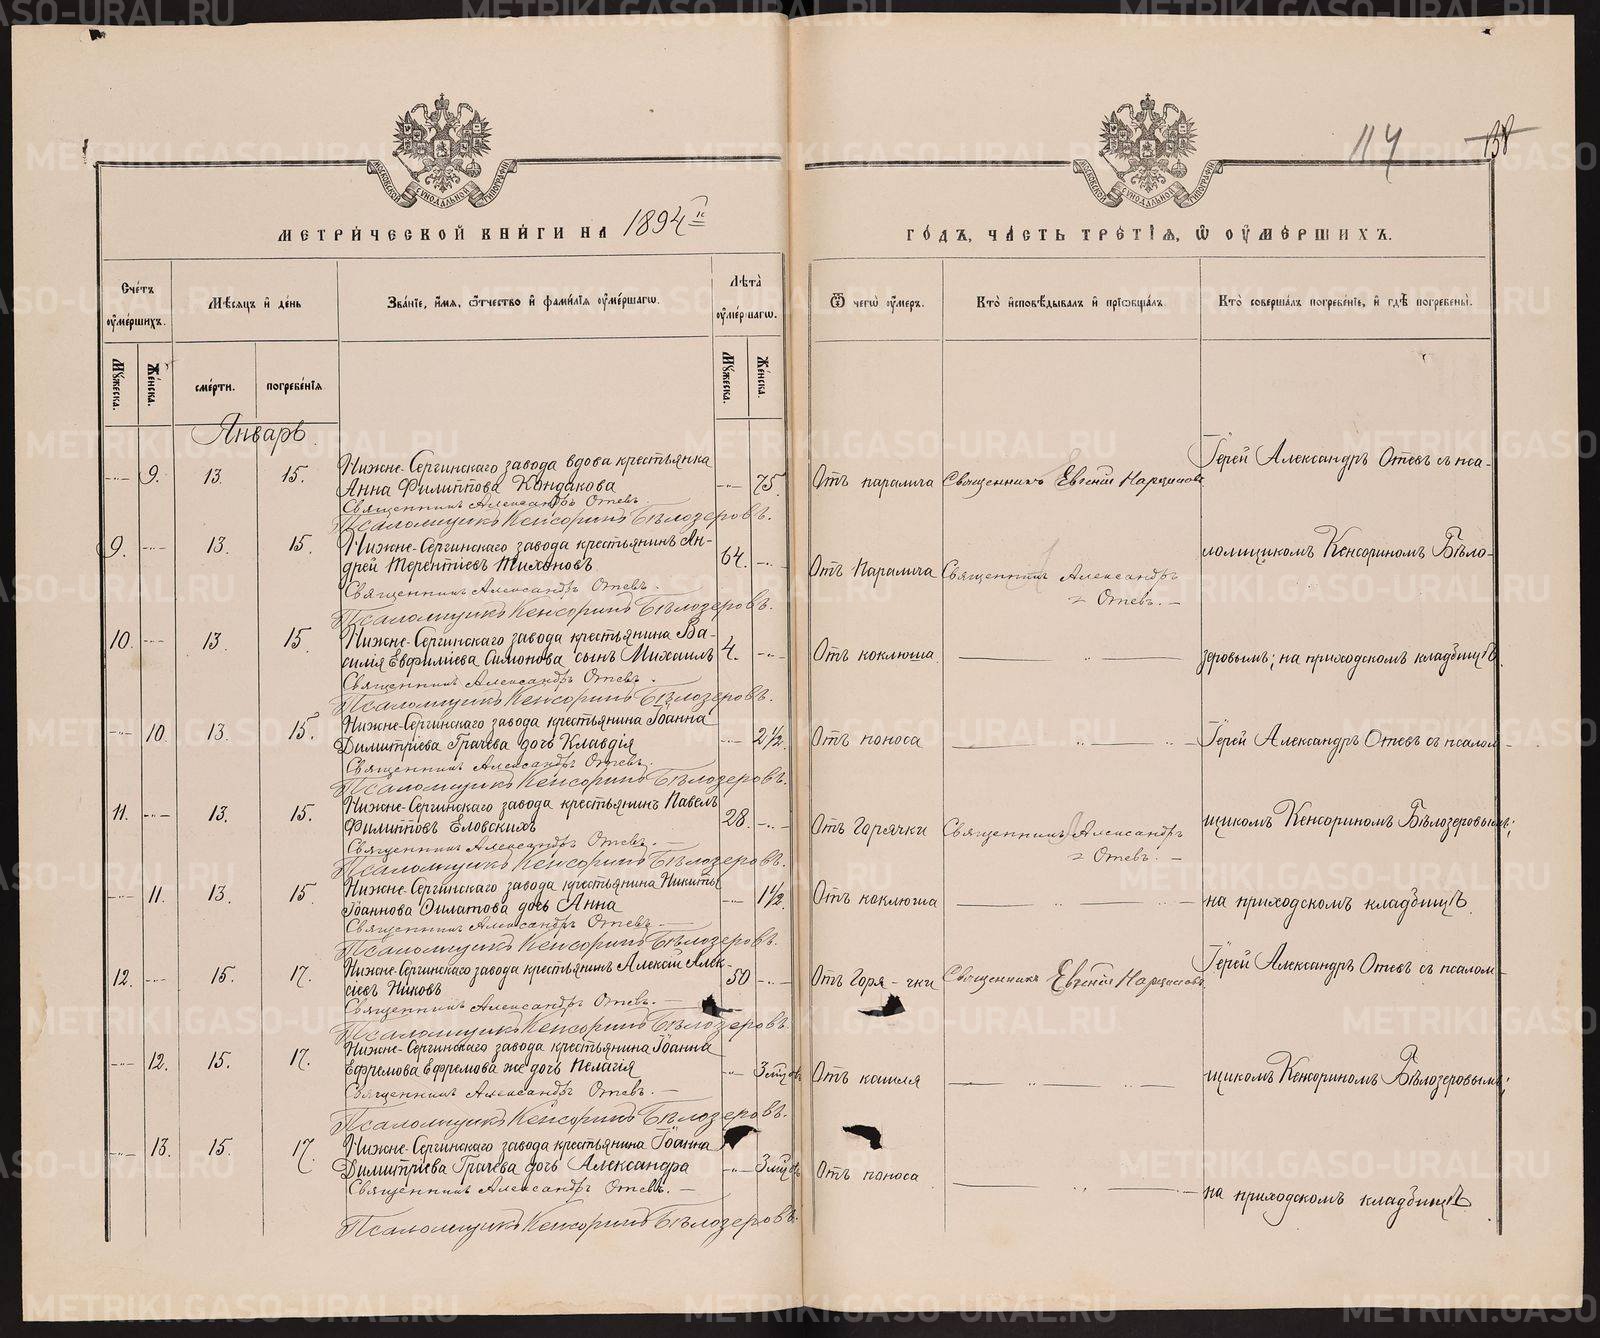 117
138
МОСКОВСКОЙ СѴНОДАЛЬНОЙ ТИПОГРАФІИ
МОСКОВСКОЙ СѴНОДАЛЬНОЙ ТИПОГРАФІИ
МЕТРИ́ЧЕСКОЙ КНИ́ГИ НА 1894
ГО́ДЪ, ЧАСТЬ ТРЕ́ТІѦ, Ѿ ОУМЕ́РШИХЪ.
Сче́тъ оумершихъ.
Мѣсяцъ и день
Званіе, имя, отчество и фамилія оумершагѡ.
Лѣта оумершагѡ.
Ѿ чегѡ оумеръ.
Кто исповѣдывалъ и пріѡбщалъ.
Кто совершалъ погребеніе, и гдѣ погребены.
Мужеска.
Женска.
смерти.
погребенія
Мужеска.
Женска.
Январь.
9. 13. 15. Нижне-Сергинскаго завода вдова крестьянка
Анна Филиппова Кондакова 75.
Отъ паралича Священникъ Евгеній
Іерей Александръ Отевъ съ пса-
Священникъ Александръ Отевъ.
Псаломщикъ Кенсоринъ Бѣлозеровъ.
9. 13. 15. Нижне-Сергинскаго завода крестьянинъ Ан-
дрей Терентіевъ Тихановъ 64.
Отъ Паралича Священникъ Александръ
Отевъ.
ломщикомъ Кенсориномъ Бѣло-
Священникъ Александръ Отевъ.
Псаломщикъ Кенсоринъ Бѣлозеровъ.
10. 13. 15. Нижне-Сергинскаго завода крестьянина Ва-
силія Евфиміева Симонова сынъ Михаилъ 4.
Отъ коклюша
зеровымъ; на приходскомъ кладбищѣ.
Священникъ Александръ Отевъ.
Псаломщикъ Кенсоринъ Бѣлозеровъ.
10. 13. 15. Нижне-Сергинскаго завода крестьянина Іоанна
Димитріева Грачева дочь Клавдія 2 1/2.
Отъ поноса
Іерей Александръ Отевъ съ псалом-
Священникъ Александръ Отевъ.
Псаломщикъ Кенсоринъ Бѣлозеровъ.
11. 13. 15. Нижне-Сергинскаго завода крестьянинъ Павелъ
Филипповъ Еловскихъ 28.
Отъ Горячки Священникъ Александръ
Отевъ.
щикомъ Кенсориномъ Бѣлозеровымъ;
Священникъ Александръ Отевъ.
Псаломщикъ Кенсоринъ Бѣлозеровъ.
11. 13. 15. Нижне-Сергинскаго завода крестьянина Никиты
Іоаннова Филатова дочь Анна 1 1/2.
Отъ коклюша
на приходскомъ кладбищѣ.
Священникъ Александръ Отевъ.
Псаломщикъ Кенсоринъ Бѣлозеровъ.
12. 15. 17. Нижне-Сергинскаго завода крестьянинъ Алексій Алек-
сіевъ 50
Отъ Горя-чки Священникъ Евгеній
Іерей Александръ Отевъ съ псалом-
Священникъ Александръ Отевъ.
Псаломщикъ Кенсоринъ Бѣлозеровъ.
12. 15. 17. Нижне-Сергинскаго завода крестьянина Іоанна
Ефремова Ефремова же дочь Пелагія 3 мѣсяцовъ
Отъ кашля
щикомъ Кенсориномъ Бѣлозеровымъ;
Священникъ Александръ Отевъ.
Псаломщикъ Кенсоринъ Бѣлозеровъ.
13. 15. 17. Нижне-Сергинскаго завода крестьянина Іоанна
Димитріева Грачева дочь Александра 3
Отъ поноса
на приходскомъ кладбищѣ
Священникъ Александръ Отевъ.
Псаломщикъ Кенсоринъ Бѣлозеровъ.
METRIKI.GASO-URAL.RU